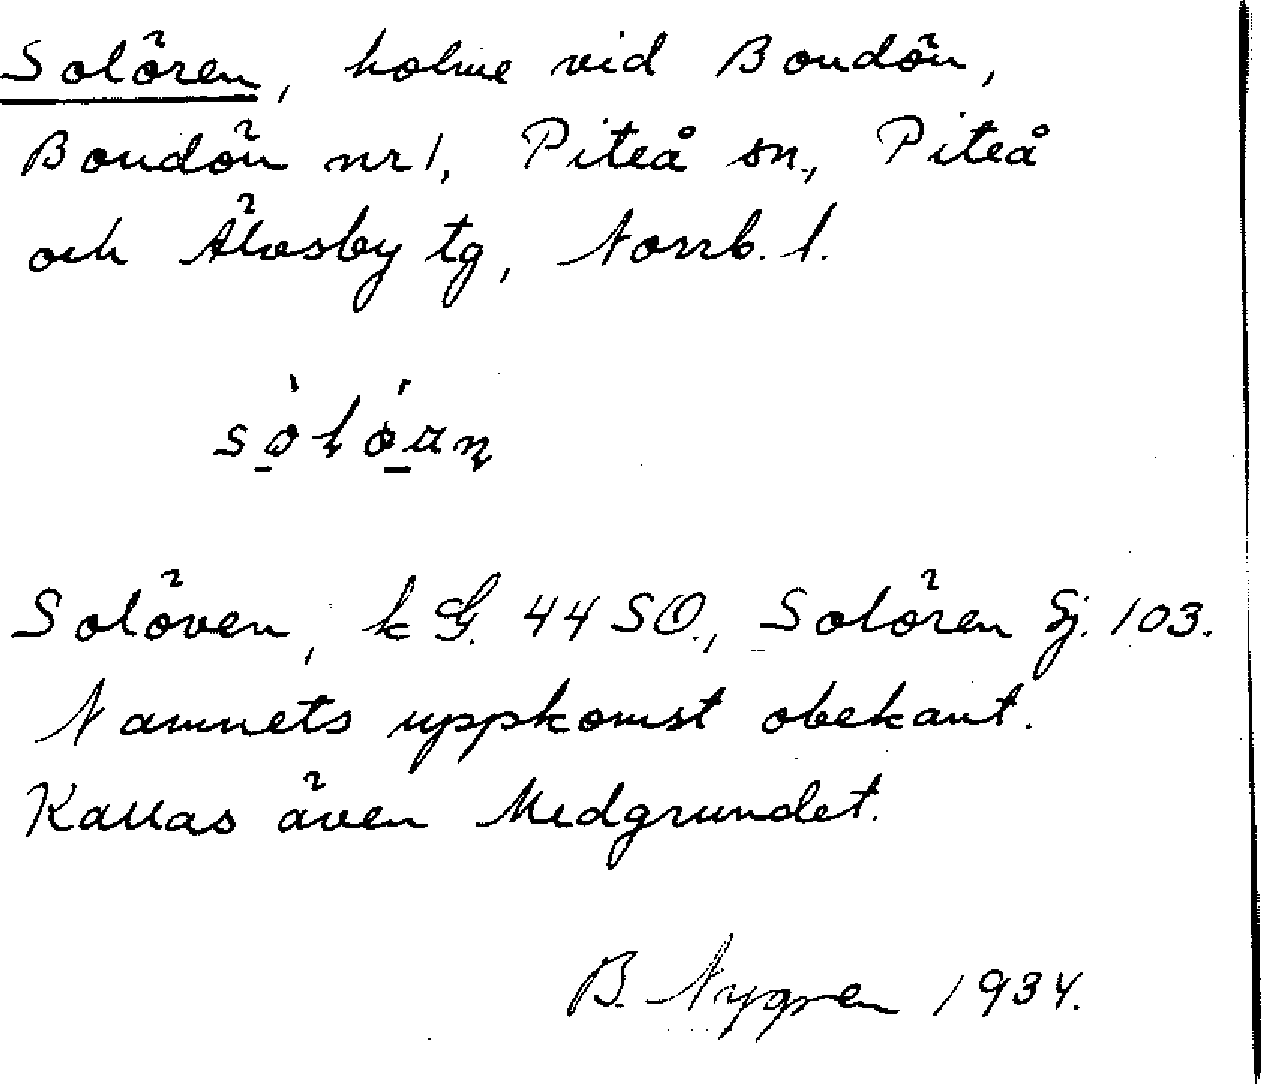 Solören, holme vid Bondön,
Bondön nr 1, Piteå sn., Piteå
och Älvsby tg, Norrb. l.
Solöven, k G. 44 SO., Solören Sj. 103.
Namnets uppkomst obekant.
Kallas även Medgrundet.
B. Nygren 1934.